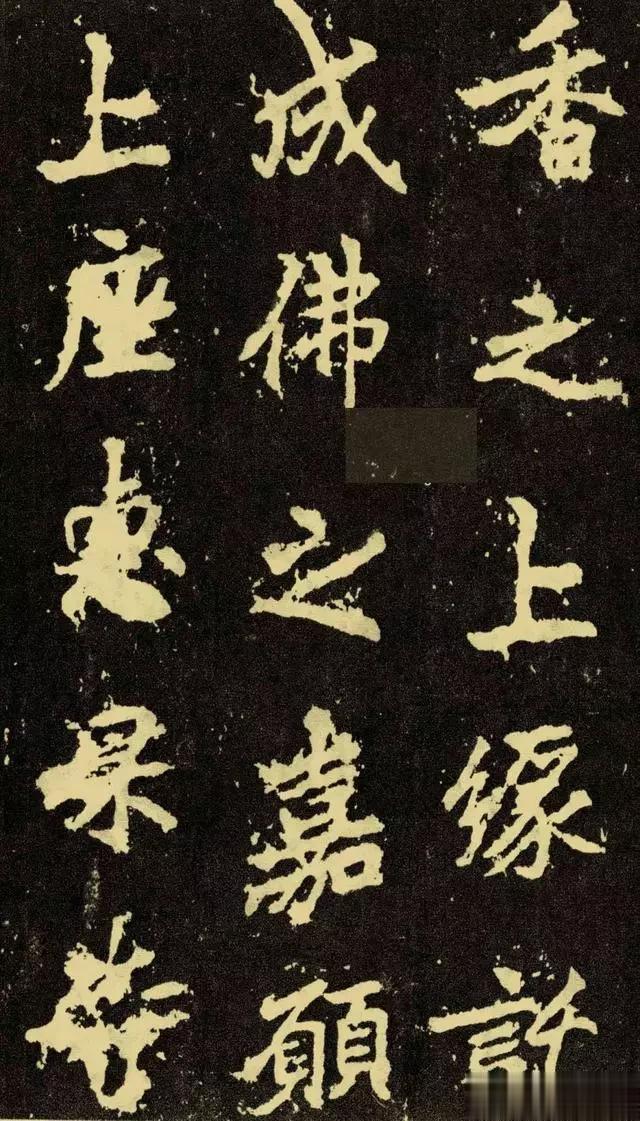 香之上緣許
成佛之嘉願
上座惠杲等